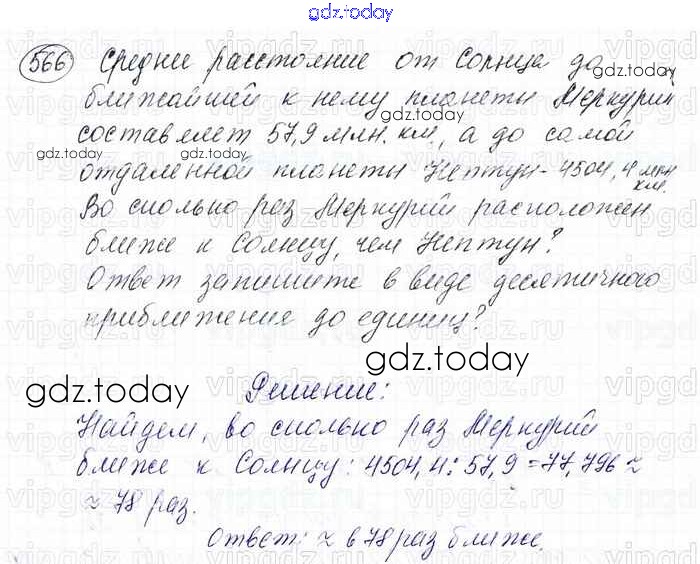 gdz.today
566 Среднее расстояние от Солнца до
gdz.today
ближайшей к нему планеты Меркурий
составляет 57,9 млн. км., а до самой
gdz.today gdz.today
отдаленной планеты Нептун - 4504,4 млн км.
Во сколько раз Меркурий расположен
ближе к Солнцу, чем Нептун?
Ответ запишите в виде десятичного
приближения до единиц?
gdz.today
gdz.today Решение:
Найдем, во сколько раз Меркурий
ближе к Солнцу: 4504,4 : 57,9 = 77,796 ≈
≈ 78 раз.
Ответ: ≈ в 78 раз ближе.